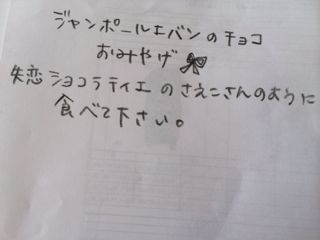 ジャンポールエバンのチョコ
おみやげ
失恋ショコラティエのさえこさんのように
食べて下さい。